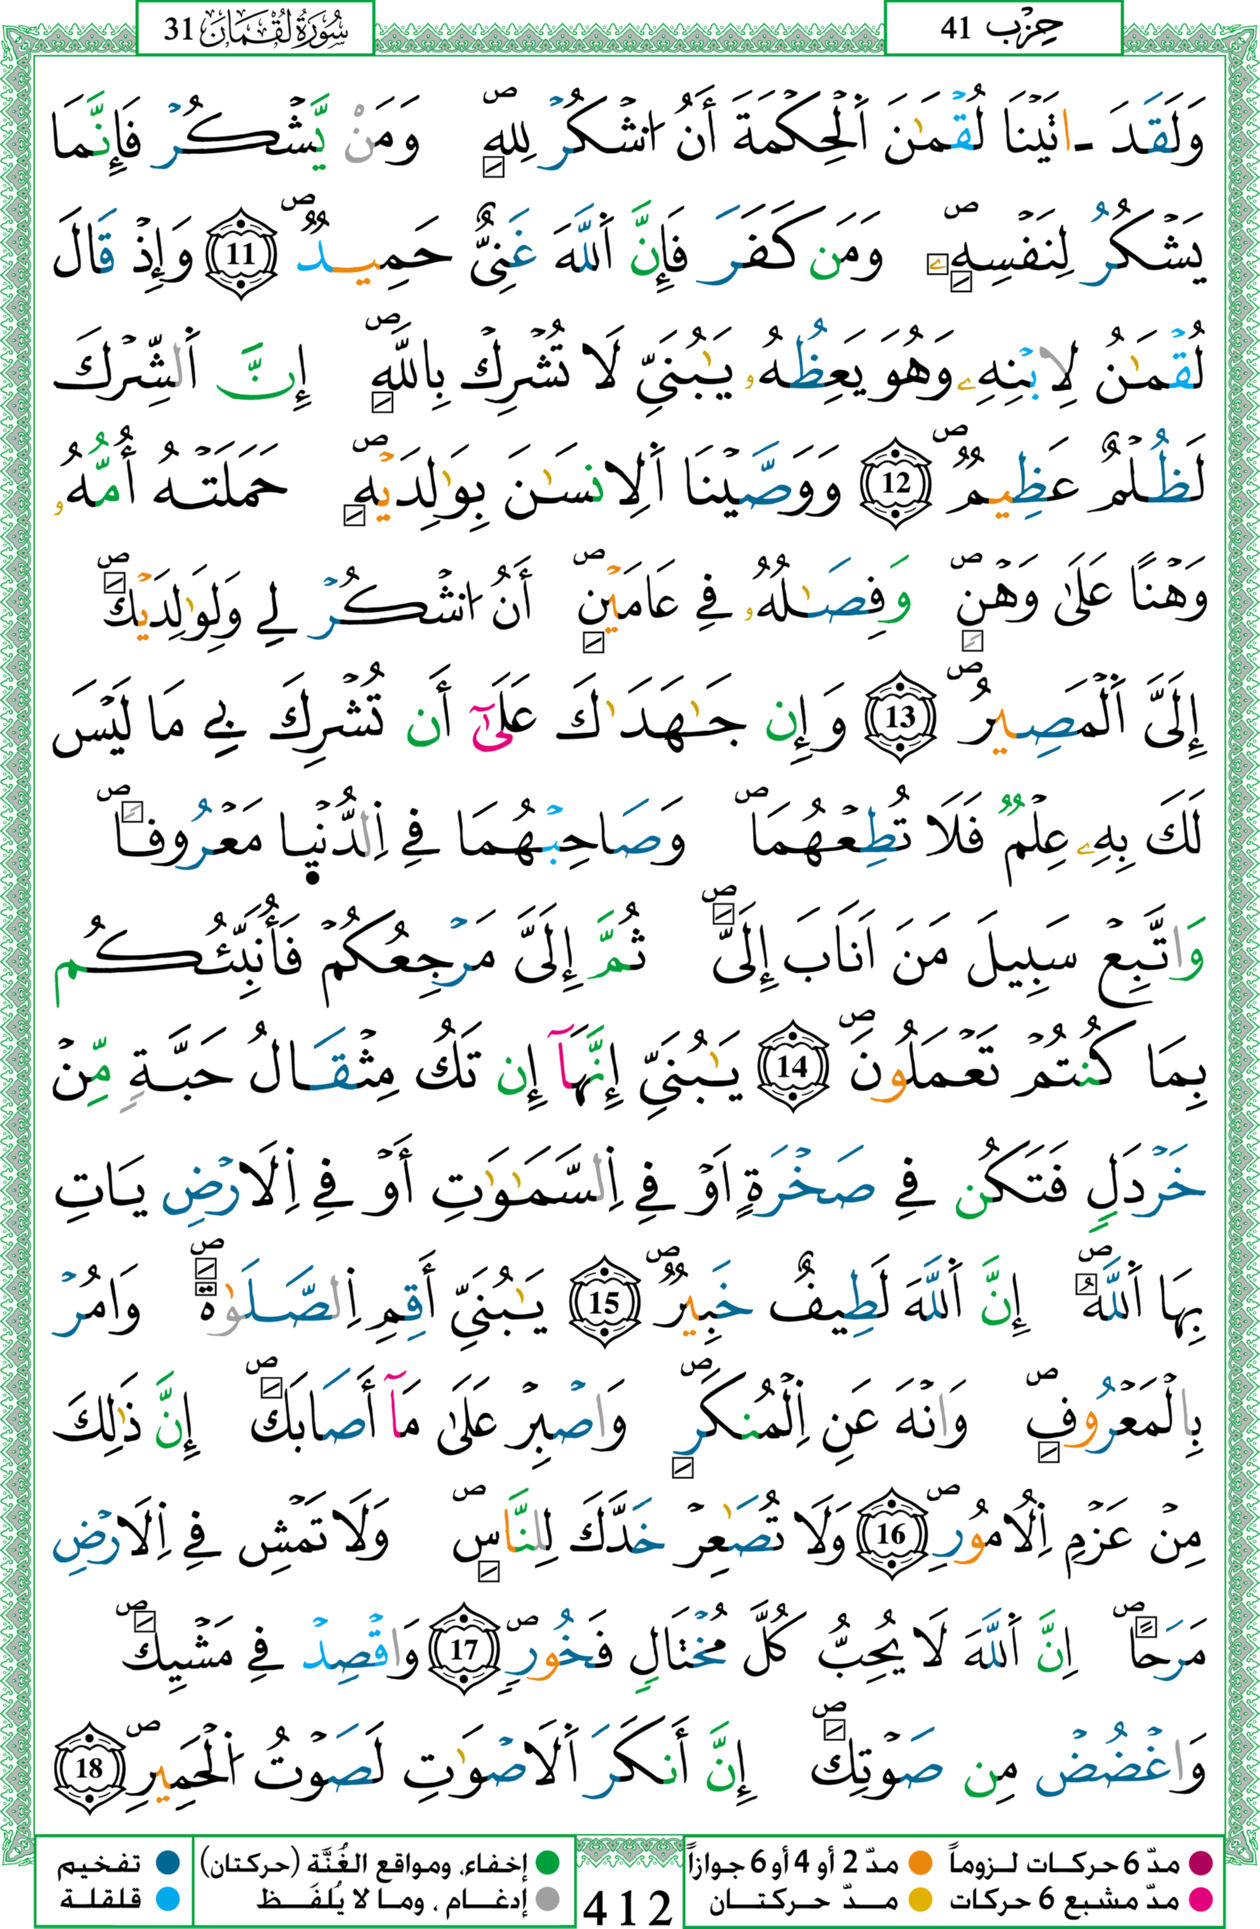 سُورَةُ لُقْمَان 31
حِزْب 41
وَلَقَدَ ـ اتَيْنَا لُقْمَٰنَ اَ۬لْحِكْمَةَ أَنُ اُ۟شْكُرْ لِلهِۖ وَمَنْ يَّشْكُرْ فَإِنَّمَا
يَشْكُرُ لِنَفْسِهِۦۖ وَمَن كَفَرَ فَإِنَّ اَ۬للَّهَ غَنِيٌّ حَمِيدٞۖ 11 وَإِذْ قَالَ
لُقْمَٰنُ لِابْنِهِۦ وَهُوَ يَعِظُهُۥ يَٰبُنَيِّ لَا تُشْرِكْ بِاللَّهِۖ إِنَّ اَ۬لشِّرْكَ
لَظُلْمٌ عَظِيمٞۖ 12 وَوَصَّيْنَا اَ۬لِانسَٰنَ بِوَٰلِدَيْهِۖ حَمَلَتْهُ أُمُّهُۥ
وَهْناً عَلَىٰ وَهْنٖۖ وَفِصَٰلُهُۥ فِے عَامَيْنِۖ أَنُ اُ۟شْكُرْ لِے وَلِوَٰلِدَيْكَۖ
إِلَيَّ اَ۬لْمَصِيرُۖ 13 وَإِن جَٰهَدَٰكَ عَلَىٰٓ أَن تُشْرِكَ بِے مَا لَيْسَ
لَكَ بِهِۦ عِلْمٞ فَلَا تُطِعْهُمَاۖ وَصَاحِبْهُمَا فِے اِ۬لدُّنْيَا مَعْرُوفاٗۖ
وَاتَّبِعْ سَبِيلَ مَنَ اَنَابَ إِلَيَّۖ ثُمَّ إِلَيَّ مَرْجِعُكُمْ فَأُنَبِّئُكُم
بِمَا كُنتُمْ تَعْمَلُونَۖ 14 يَٰبُنَيِّ إِنَّهَآ إِن تَكُ مِثْقَالُ حَبَّةٖ مِّنْ
خَرْدَلٖ فَتَكُن فِے صَخْرَةٍ اَوْ فِے اِ۬لسَّمَٰوَٰتِ أَوْ فِے اِ۬لَارْضِ يَاتِ
بِهَا اَ۬للَّهُۖ إِنَّ اَ۬للَّهَ لَطِيفٌ خَبِيرٞۖ 15 يَٰبُنَيِّ أَقِمِ اِ۬لصَّلَوٰةَۖ وَامُرْ
بِالْمَعْرُوفِۖ وَانْهَ عَنِ اِ۬لْمُنكَرِۖ وَاصْبِرْ عَلَىٰ مَآ أَصَابَكَۖ إِنَّ ذَٰلِكَ
مِنْ عَزْمِ اِ۬لُامُورِۖ 16 وَلَا تُصَٰعِرْ خَدَّكَ لِلنَّاسِۖ وَلَا تَمْشِ فِے اِ۬لَارْضِ
مَرَحاًۖ اِنَّ اَ۬للَّهَ لَا يُحِبُّ كُلَّ مُخْتَالٖ فَخُورٖۖ 17 وَاقْصِدْ فِے مَشْيِكَۖ
وَاغْضُضْ مِن صَوْتِكَۖ إِنَّ أَنكَرَ اَ۬لَاصْوَٰتِ لَصَوْتُ اُ۬لْحَمِيرِۖ 18
مدّ 6 حركات لـزوماً مدّ 2 أو 4 أو 6 جوازاً إخفاء، ومواقع الغُنَّة (حركتان) تفخيم
مدّ مشبع 6 حركات مـدّ حركتـان إدغـام ، ومـا لا يُلفَـظ قلقلة
412